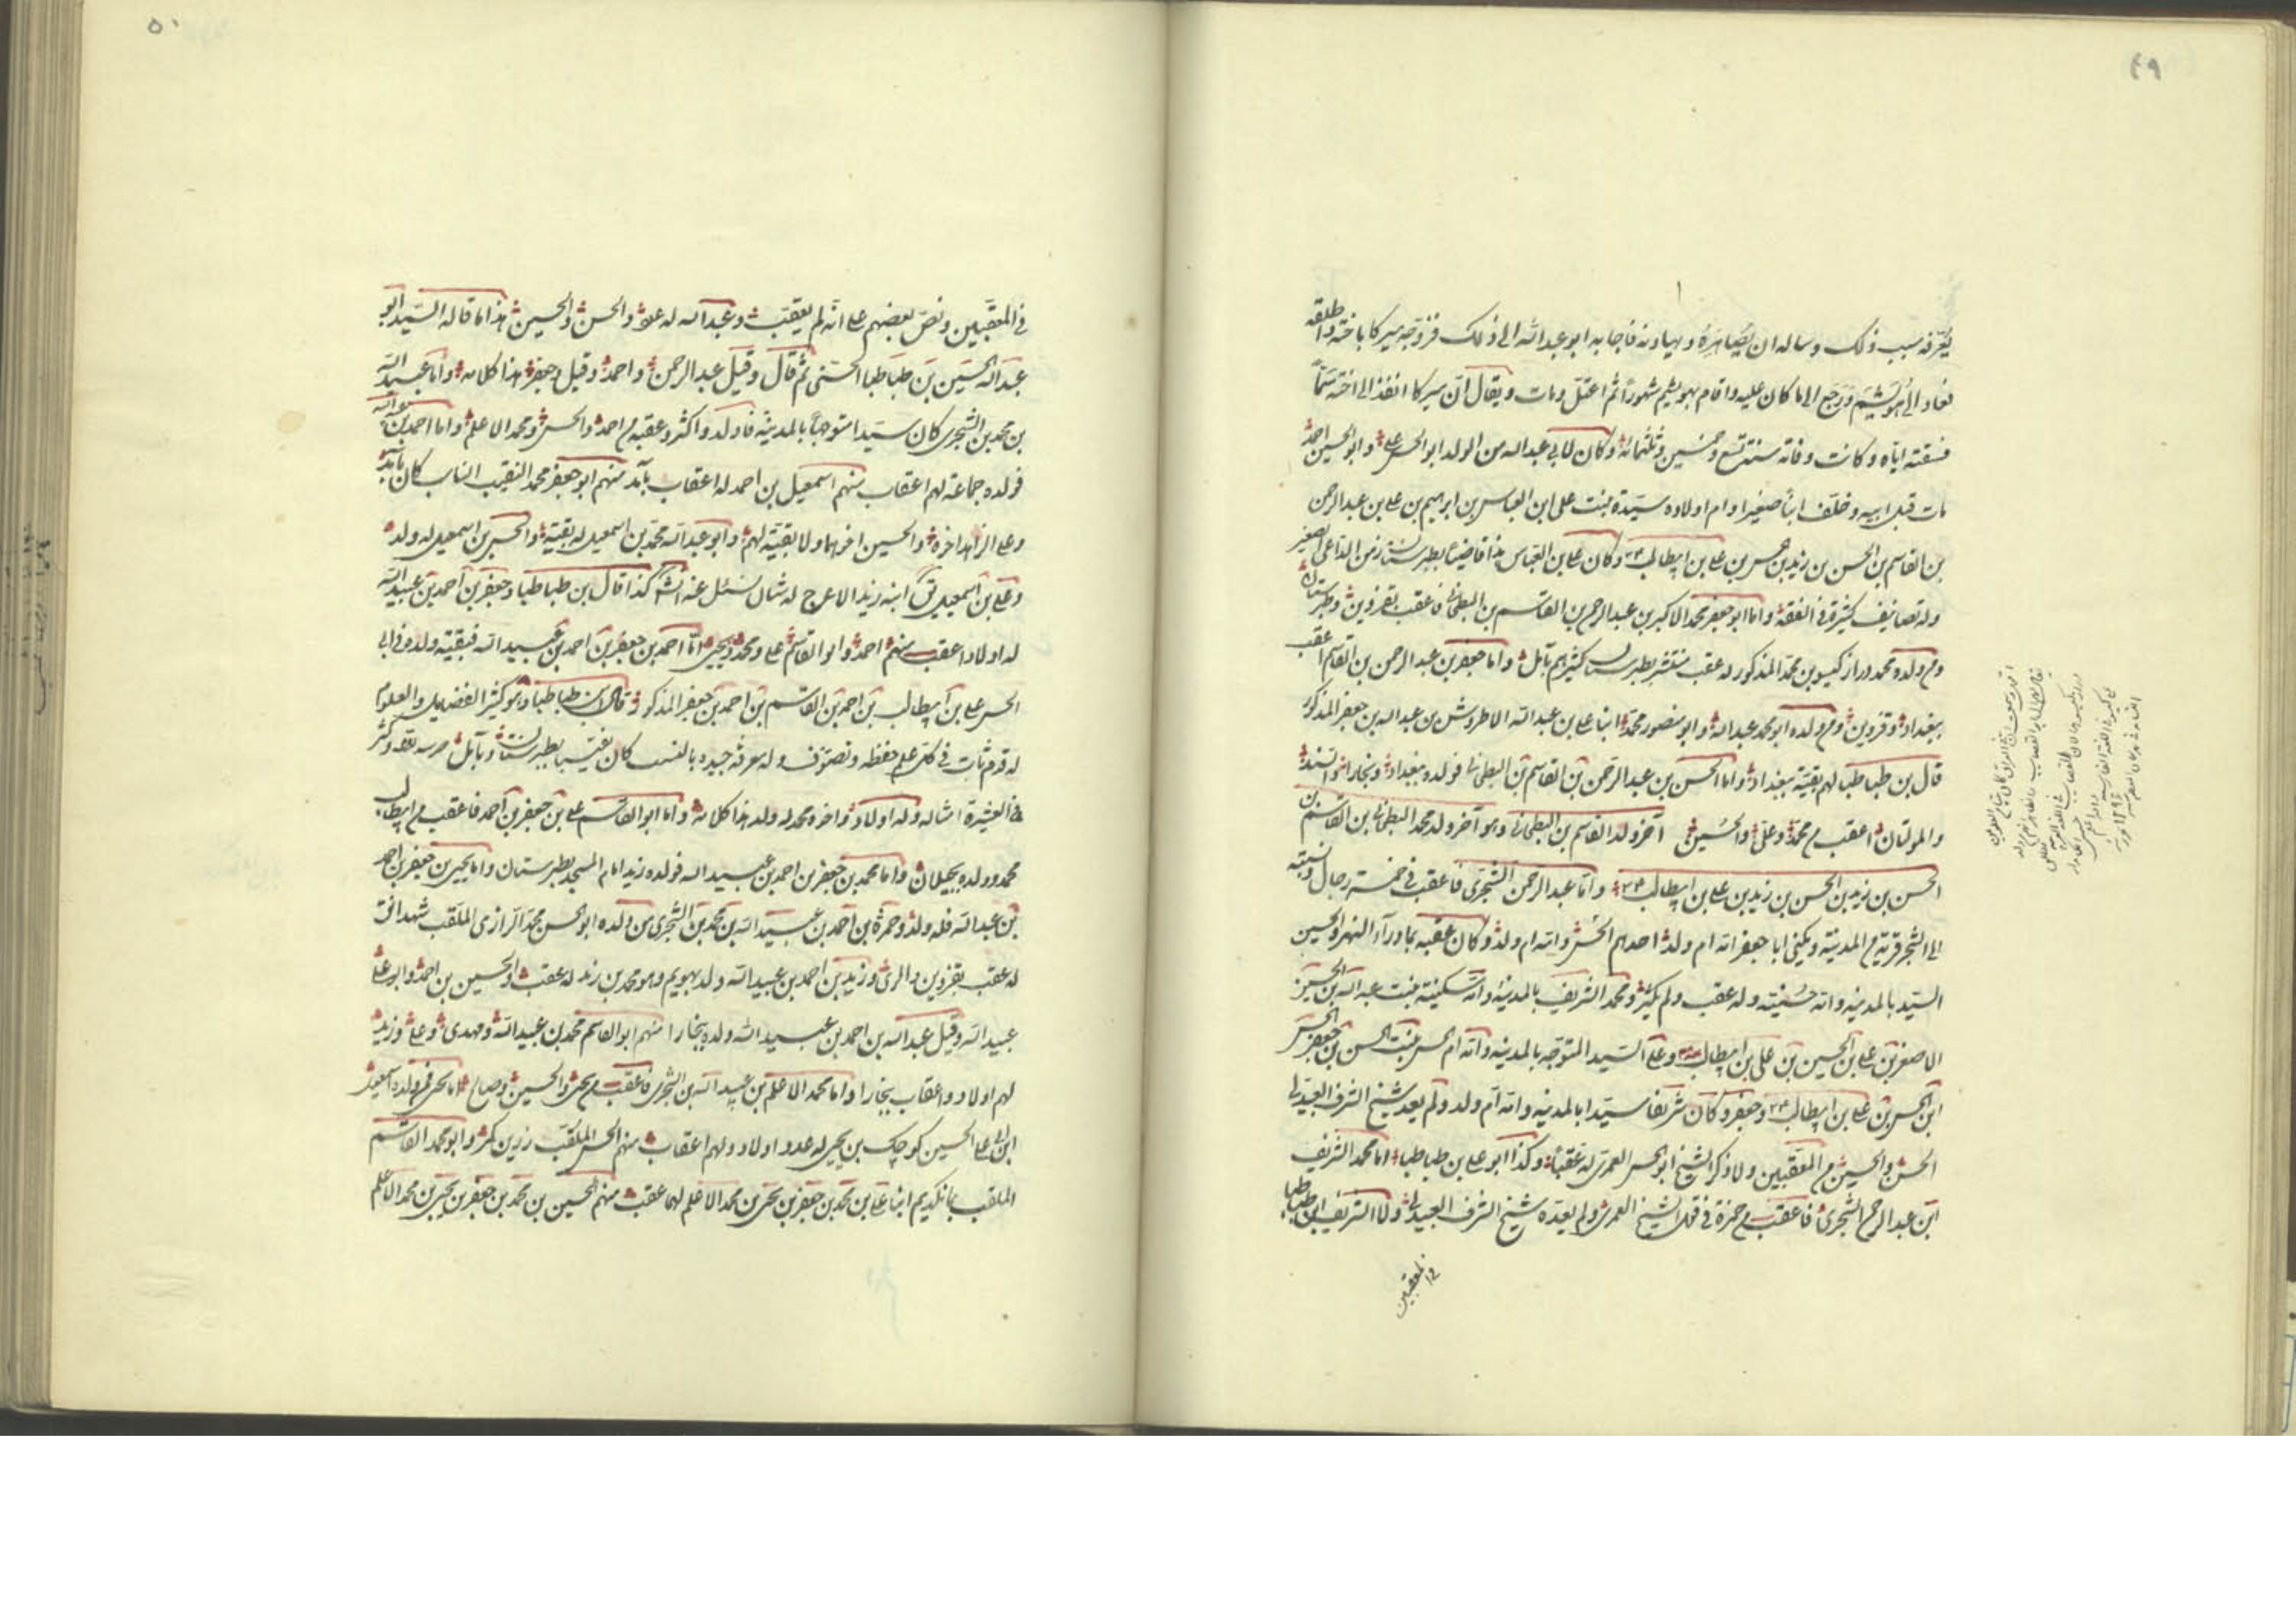 ٤٩
يعرفه سبب ذلك وساله ان يصاهره ويهادنه فاجابه ابو عبدالله الى ذلك فزوجه ميركا باخته واطلقه
فعاد الى هوسم ورجع الى ما كان عليه واقام بهوسم شهوراً ثم اعتل ومات ويقال ان ميركا انفذ الى اخته سمّاً
فسقته اياه وكانت وفاته سنة تسع وخمسين وثلثمائة وكان لابي عبدالله من الولد ابو الحسن علي وابو الحسين احمد
مات قبل ابيه وخلف ابناً صغيرا وام اولاده سيدة بنت علي ابن العباس بن ابراهيم بن علي بن عبدالرحمن
بن القاسم بن الحسن بن زيد بن حسن بن علي بن ابيطالب وكان علي بن العباس هذا قاضيا بطبرستان زمن الداعي الصغير
وله تصانيف كثيرة في الفقه واما ابو جعفر محمد الاكبر بن عبدالرحمن بن القاسم بن البطحاني فاعقب بقزوين وطبرستان
ومن ولده محمد دراز كيسو بن محمد المذكور له عقب منتشر بطبرستان كثيرهم بآمل واما جعفر بن عبدالرحمن بن القاسم اعقب
ببغداد وقزوين ومن ولده ابو محمد عبدالله وابو منصور محمد ابنا علي بن عبدالله الاطروش بن عبدالله بن جعفر المذكور
قال بن طباطبا لهم بقية ببغداد واما الحسن بن عبدالرحمن بن القاسم بن البطحاني فولده ببغداد وبخارا والسند
والمولتان اعقب من محمد وعلي والحسين آخر ولد القاسم بن البطحاني وهو آخر ولد محمد البطحاني بن القاسم بن
الحسن بن زيد بن الحسن بن زيد بن علي بن ابيطالب واما عبدالرحمن الشجري فاعقب في خمسة رجال ونسبته
الى الشجر قرية من المدينة ويكنى ابا جعفر امه ام ولد احدهم الحسن وامه ام ولد وكان عقبه بما وراء النهر والحسين
السيد بالمدينة وامه حسينية وله عقب ولم يكثر ومحمد الشريف بالمدينة وامه سكينة بنت عبدالله بن الحسين
الاصغر بن علي بن الحسين بن علي بن ابيطالب وعلي السيد المتوجه بالمدينه وامه ام الحسن بنت الحسن بن جعفر بن الحسن
ابن الحسن بن علي بن ابيطالب وجعفر وكان شريفا سيدا بالمدينه وامه ام ولد ولم يعد شيخ الشرف العبيدلي
الحسن والحسين من المعقبين ولا ذكر الشيخ ابو الحسن العمري له عقبا وكذا ابو علي بن طباطبا اما محمد الشريف
ابن عبدالرحمن الشجري فاعقب من حمزة في قول الشيخ العمري ولم يعده شيخ الشرف العبيدلي ولا الشريف ابن طباطبا
في المعقبين
٥٠
في المعقبين ونص بعضهم على انه لم يعقب وعبدالله له علي والحسن والحسين هذا ما قاله السيد ابو
عبدالله الحسين بن طباطبا الحسني ثم قال وقيل عبدالرحمن واحمد وقيل وجعفر هذا كلامه واما عبيدالله
بن محمد بن الشجري كان سيدا متوجها بالمدينة فاولد واكثر وعقبه من احمد والحسن ومحمد الاعلم واما احمد بن عبيدالله
فولده جماعة لهم اعقاب منهم اسمعيل بن احمد له اعقاب بآمد منهم ابو جعفر محمد النقيب الناب كان بآمد
وعلي الزاهد اخوه والحسين اخوهما ولا بقية لهم وابو عبدالله محمد بن اسمعيل له بقية والحسن بن اسمعيل له ولد
وعلي بن اسمعيل ابنه زيد الاعرج له شال سئل عنه كذا قال بن طباطبا وجعفر بن احمد بن عبيدالله
له اولاد اعقب منهم احمد وابو القاسم علي ومحمد ويحيى اما احمد بن جعفر بن احمد بن عبيدالله فبقية ولده في ابي
الحسن علي بن ابيطالب بن احمد بن القاسم بن احمد بن جعفر المذكور وقال ابن طباطبا وهو كثير الفضايل والعلوم
له قدم ثابت في كل علم حفظه وتصوف وله معرفة جيده بالنسب كان نقيبا بطبرستان وبآمل حرسه الله وكثر
في العشيرة امثاله وله اولاد واخوه محمد له ولد هذا كلامه واما ابو القاسم علي بن جعفر بن احمد فاعقب من ابيطالب
محمد وولده بجيلان واما محمد بن جعفر بن احمد بن عبيدالله فولده زيد امام المسجد بطبرستان واما يحيى بن جعفر بن احمد
بن عبدالله فله ولد وحمزة بن احمد بن عبيدالله بن محمد بن الشجري من ولده ابو الحسن محمد الرازي الملقب شهدانق
له عقب بقزوين والري وزيد بن احمد بن عبيدالله ولد بهوسم وهو محمد بن زيد له عقب والحسين بن احمد وابو علي
عبيدالله وقيل عبدالله بن احمد بن عبيدالله ولده ببخارا منهم ابو القاسم محمد بن عبيدالله ومهدي وعلي وزيد
لهم اولاد واعقاب ببخارا واما محمد الاعلم بن عبيدالله بن الشجري فاعقب من يحيى والحسين وصالح اما يحيى فمن ولده اسمعيل
ابن ابي علي الحسين كوچك بن يحيى له عدد اولاد ولهم اعقاب منهم الحسن الملقب زرين كمر وابو محمد القاسم
الملقب بمانكديم ابنا علي بن محمد بن جعفر بن يحيى بن محمد الاعلم لهما عقب منهم الحسين بن محمد بن جعفر بن يحيى بن محمد الاعلم